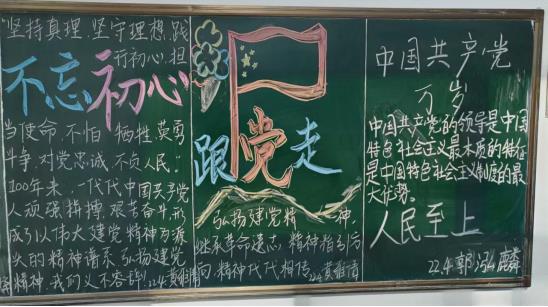 "坚持真理、坚守理想,践
行初心、担
不忘初心
当使命,不怕牺牲、英勇
斗争,对党忠诚、不负人民"
100年来,一代代中国共产党
人顽强拼搏、艰苦奋斗,形
成了以伟大建党精神为源
头的精神谱系,弘扬建党
精神,我们义不容辞!
跟党走
弘扬建党精神,
继承革命遗志,精神指引方
向,精神代代相传
中国共产党
万岁
中国共产党的领导是中国
特色社会主义最本质的特征
是中国特色社会主义制度的最
大优势。
人民至上
22.4 郭泓麟